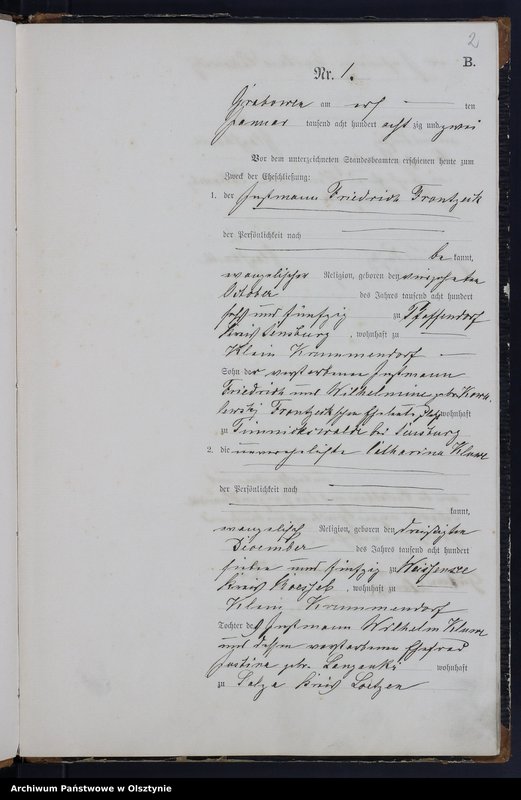 2
B.
Nr. 1.
Grabowen am erst ten
Januar tausend acht hundert acht zig und zwei
Vor dem unterzeichneten Standesbeamten erschienen heute zum
Zweck der Eheschließung:
1. der Instmann Friedrich Frantzeck
der Persönlichkeit nach
be kannt,
evangelischer Religion, geboren den vierzehnten
October des Jahres tausend acht hundert
sechs und fünfzig zu Pfaffendorf
Kreis Sensburg, wohnhaft zu
Klein Krummendorf
Sohn der verstorbenen Instmann
Friedrich und Wilhelmine geb.
Frantzeckschen Eheleute, wohnhaft
zu bei Sensburg
2. die unverehelichte Catharina Klum
der Persönlichkeit nach
kannt,
evangelisch Religion, geboren den dreißigsten
December des Jahres tausend acht hundert
sieben und fünfzig zu Weissensee
Kreis Roessel, wohnhaft zu
Klein Krummendorf
Tochter des Instmann Wilhelm Klum
und dessen verstorbene Ehefrau
Justine geb. Langanki wohnhaft
zu Salza Kreis Loetzen
Archiwum Państwowe w Olsztynie